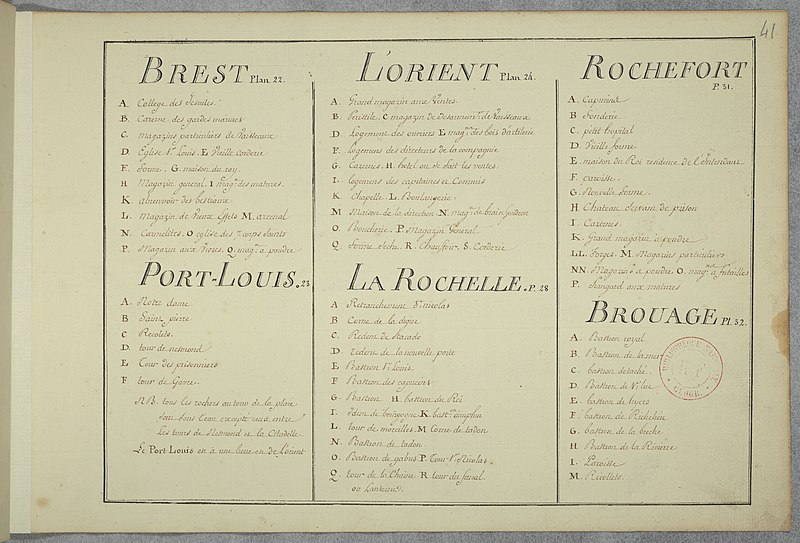 41
BREST Plan 22.
A. College des Jesuites.
B. Caserne des gardes marines
C. magazins particuliers de Vaisseaux
D. Eglise St. Louis. E Vieille corderie
F. Forme. G. maison du roy.
H Magazin general. I mag.n des matures.
K abreuvoir des bestiaux
L. Magazin de vieux effets M. arcenal
N. Carmelittes. O eglise des 7 corps saints
P. Magazin aux vivres. Q. mag.n a poudre
PORT-LOUIS. 23
A. Notre dame
B Saint pierre
C Recolets.
D. tour de nesmond
E Tour des prisonniers
F. tour de Gavre.
NB. tous les rochers autour de la place
sont sous l'eau excepté ceux entre
les tours de Nesmond et la Citadelle.
Le Port Louis est à une lieue de L'orient
L'ORIENT Plan 24.
A. Grand magazin aux Ventes.
B. Peristile. C magazin de Desarmem.t de Vaisseaux
D. Logement des ouvriers E mag.n des bois d'artilerie
F. Logemens des directeurs de la compagnie
G. Casernes. H. hotel ou se fait les ventes.
I. logemens des capitaines et Commis
K. Chapelle. L. Boulangerie.
M Maison de la direction. N. mag.n de braie et goudron
O. Boucherie. P. Magazin General.
Q. Forme seche. R. Chaufour. S. Corderie
LA ROCHELLE. P. 28
A. Retranchement St. nicolas
B Corne de la digue
C. Redent de
D. redens de la nouvelle porte
E Bastion St. louis.
F Bastion des
G. Bastion H. bastion du Roi
I. de bourgogne K. bast.n dauphin
L. tour de moreilles. M Corne de tadon
N. Bastion de tadon.
O. Bastion de gabus. P. Tour St. Nicolas.
Q. tour de la Chaine. R. tour du fanal.
ou Lanterne.
ROCHEFORT
P. 31.
A. Capucins
B Fonderie
C. petit hopital
D. Vieille forme
E. maison du Roi residence de L'Intendant
F. paroisse.
G. Nouvelle forme.
H. Chateau servant de prison
I. Casernes.
K. Grand magazin a poudre
LL. Forges. M. Magazins particuliers
NN. Magazin a poudre. O. mag.n a futailles
P. changard aux matures
BROUAGE Pl. 32.
A. Bastion royal
B. Bastion de la mer
C. bastion détaché.
D. Bastion de St. luc
E. bastion de hyers
F. bastion de Richelieu
G. bastion de la breche
H. Bastion de la Riviere
I. Paroisse
M. Recollets.